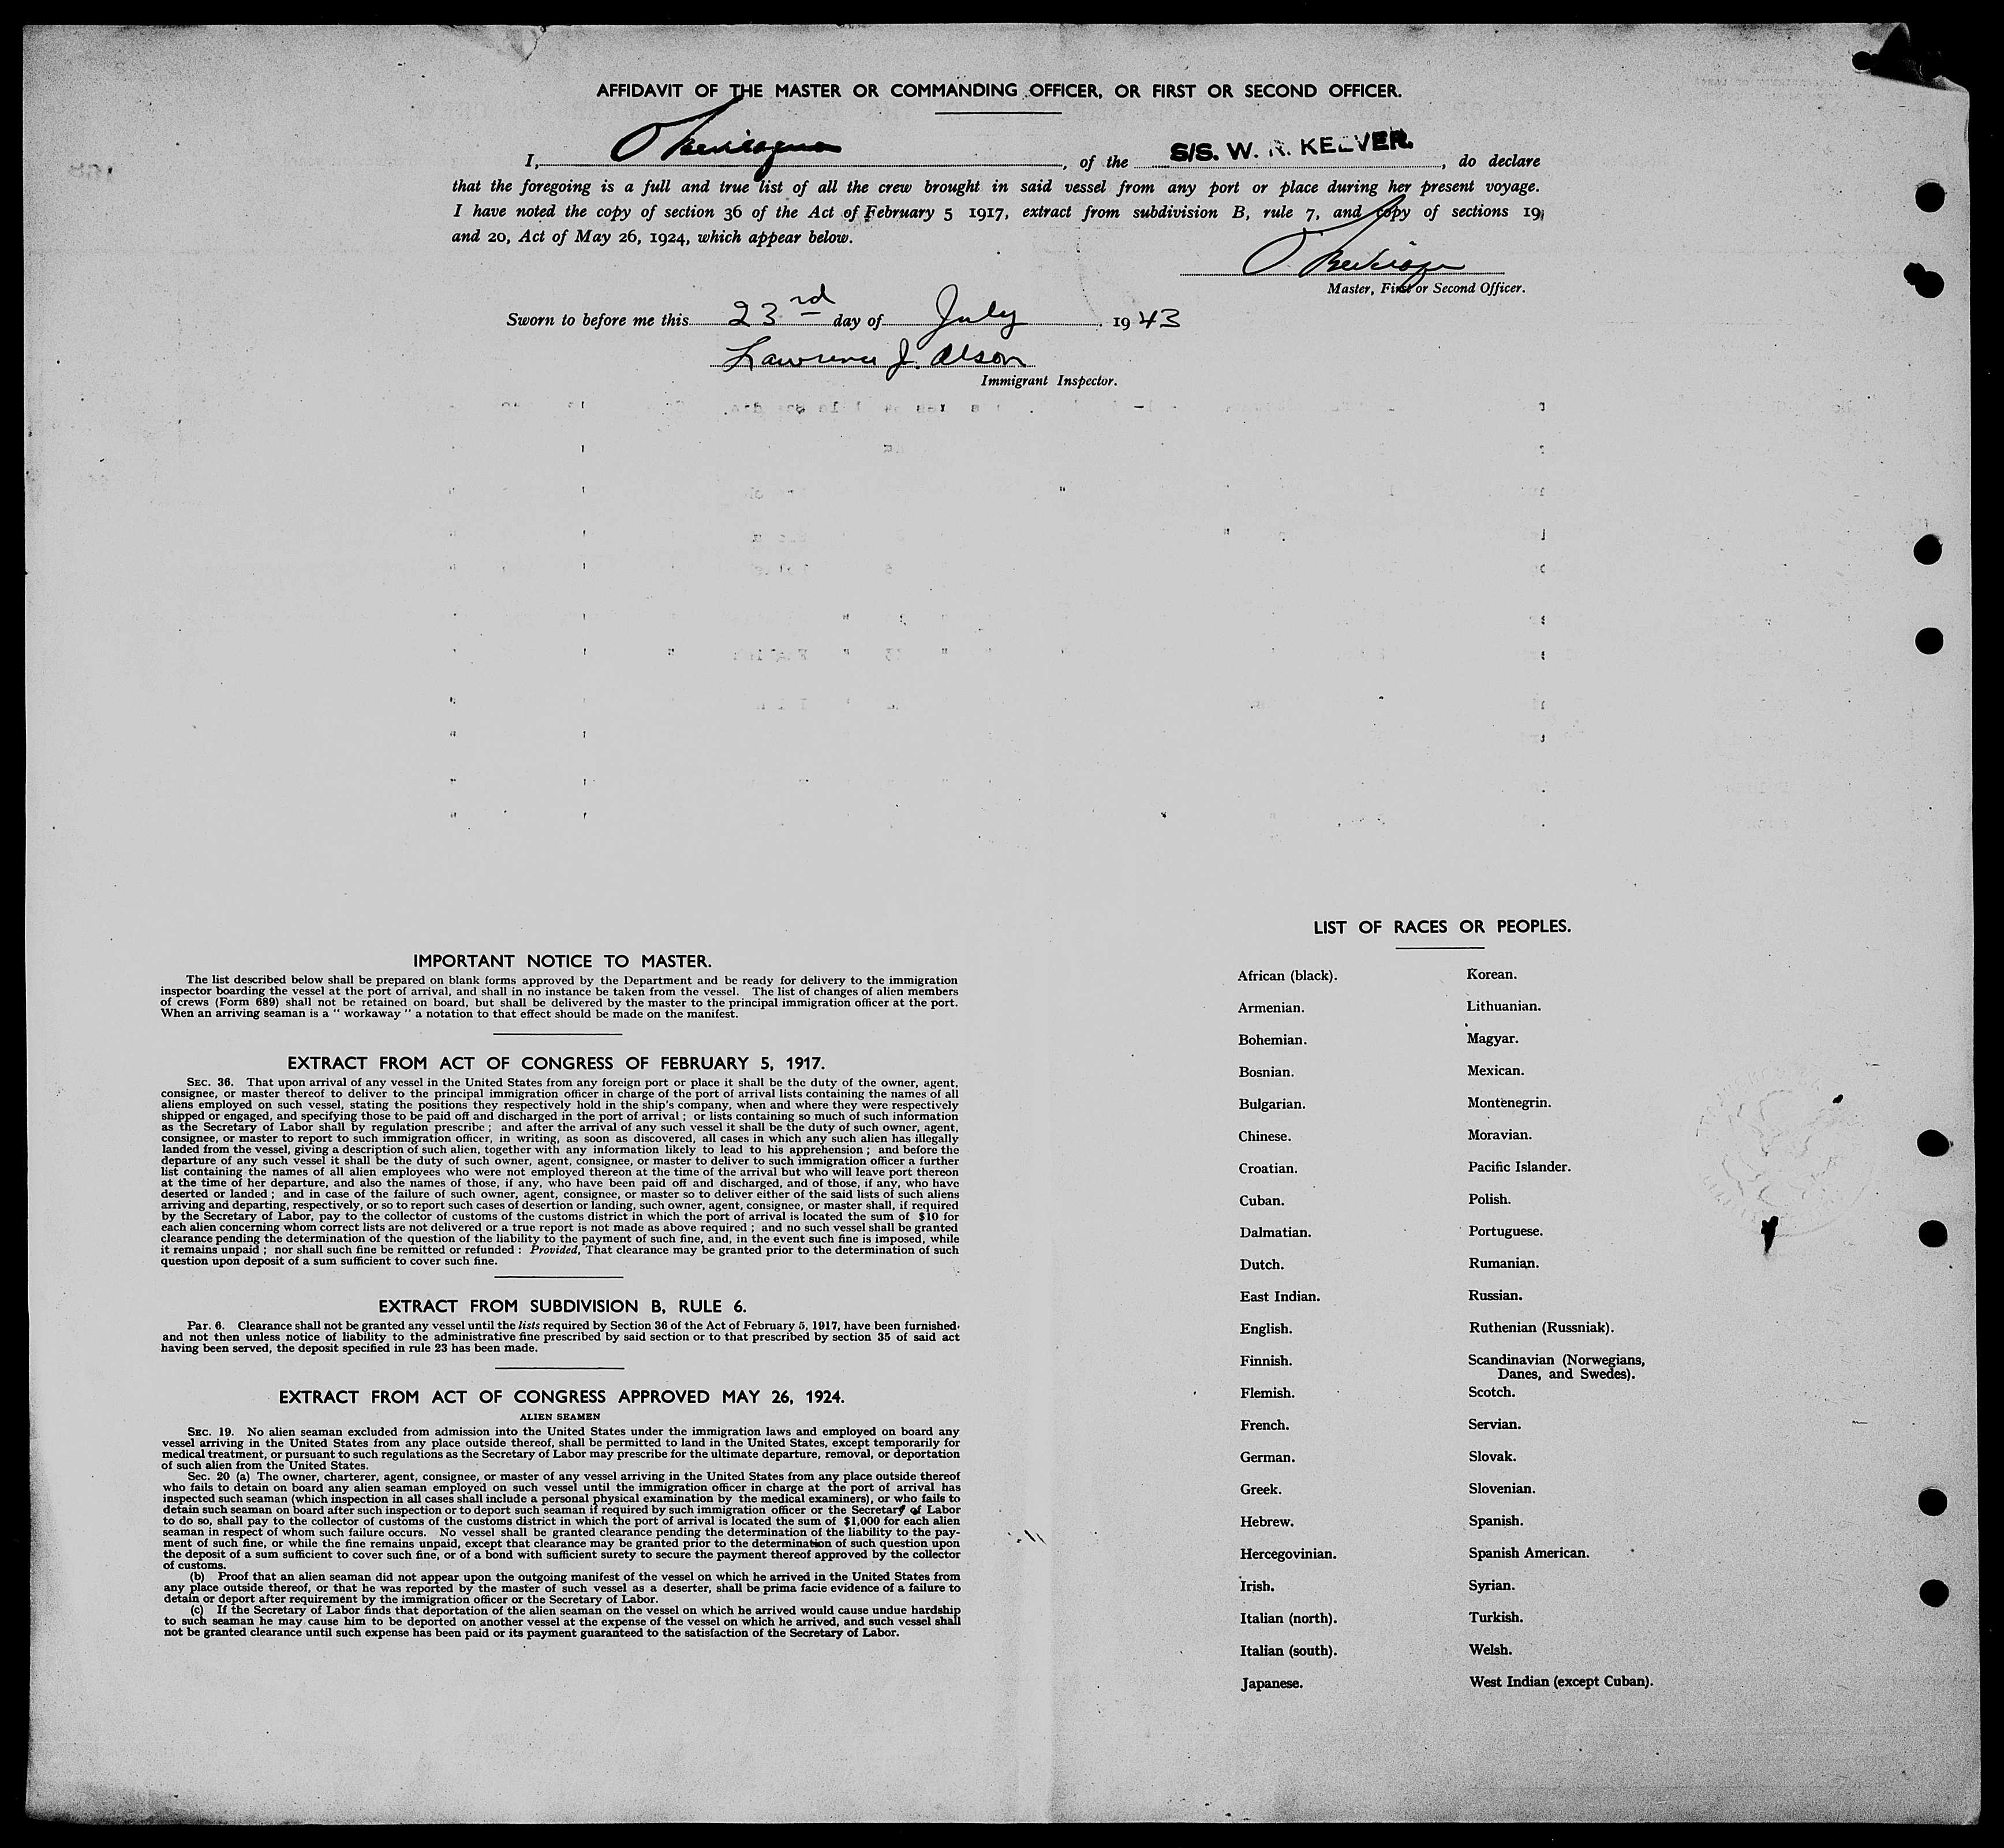 AFFIDAVIT OF THE MASTER OR COMMANDING OFFICER, OR FIRST OR SECOND OFFICER.
I, , of the S/S. W. R. KEEVER. , do declare
that the foregoing is a full and true list of all the crew brought in said vessel from any port or place during her present voyage.
I have noted the copy of section 36 of the Act of February 5 1917, extract from subdivision B, rule 7, and copy of sections 19
and 20, Act of May 26, 1924, which appear below.
Master, First or Second Officer.
Sworn to before me this 23rd day of July 1943
Lawrence J. Olson
Immigrant Inspector.
IMPORTANT NOTICE TO MASTER.
The list described below shall be prepared on blank forms approved by the Department and be ready for delivery to the immigration
inspector boarding the vessel at the port of arrival, and shall in no instance be taken from the vessel. The list of changes of alien members
of crews (Form 689) shall not be retained on board, but shall be delivered by the master to the principal immigration officer at the port.
When an arriving seaman is a " workaway " a notation to that effect should be made on the manifest.
EXTRACT FROM ACT OF CONGRESS OF FEBRUARY 5, 1917.
SEC. 36. That upon arrival of any vessel in the United States from any foreign port or place it shall be the duty of the owner, agent,
consignee, or master thereof to deliver to the principal immigration officer in charge of the port of arrival lists containing the names of all
aliens employed on such vessel, stating the positions they respectively hold in the ship's company, when and where they were respectively
shipped or engaged, and specifying those to be paid off and discharged in the port of arrival ; or lists containing so much of such information
as the Secretary of Labor shall by regulation prescribe ; and after the arrival of any such vessel it shall be the duty of such owner, agent,
consignee, or master to report to such immigration officer, in writing, as soon as discovered, all cases in which any such alien has illegally
landed from the vessel, giving a description of such alien, together with any information likely to lead to his apprehension ; and before the
departure of any such vessel it shall be the duty of such owner, agent, consignee, or master to deliver to such immigration officer a further
list containing the names of all alien employees who were not employed thereon at the time of the arrival but who will leave port thereon
at the time of her departure, and also the names of those, if any, who have been paid off and discharged, and of those, if any, who have
deserted or landed ; and in case of the failure of such owner, agent, consignee, or master so to deliver either of the said lists of such aliens
arriving and departing, respectively, or so to report such cases of desertion or landing, such owner, agent, consignee, or master shall, if required
by the Secretary of Labor, pay to the collector of customs of the customs district in which the port of arrival is located the sum of $10 for
each alien concerning whom correct lists are not delivered or a true report is not made as above required ; and no such vessel shall be granted
clearance pending the determination of the question of the liability to the payment of such fine, and, in the event such fine is imposed, while
it remains unpaid ; nor shall such fine be remitted or refunded : Provided, That clearance may be granted prior to the determination of such
question upon deposit of a sum sufficient to cover such fine.
EXTRACT FROM SUBDIVISION B, RULE 6.
Par. 6. Clearance shall not be granted any vessel until the lists required by Section 36 of the Act of February 5, 1917, have been furnished
and not then unless notice of liability to the administrative fine prescribed by said section or to that prescribed by section 35 of said act
having been served, the deposit specified in rule 23 has been made.
EXTRACT FROM ACT OF CONGRESS APPROVED MAY 26, 1924.
ALIEN SEAMEN
SEC. 19. No alien seaman excluded from admission into the United States under the immigration laws and employed on board any
vessel arriving in the United States from any place outside thereof, shall be permitted to land in the United States, except temporarily for
medical treatment, or pursuant to such regulations as the Secretary of Labor may prescribe for the ultimate departure, removal, or deportation
of such alien from the United States.
Sec. 20 (a) The owner, charterer, agent, consignee, or master of any vessel arriving in the United States from any place outside thereof
who fails to detain on board any alien seaman employed on such vessel until the immigration officer in charge at the port of arrival has
inspected such seaman (which inspection in all cases shall include a personal physical examination by the medical examiners), or who fails to
detain such seaman on board after such inspection or to deport such seaman if required by such immigration officer or the Secretary of Labor
to do so, shall pay to the collector of customs of the customs district in which the port of arrival is located the sum of $1,000 for each alien
seaman in respect of whom such failure occurs. No vessel shall be granted clearance pending the determination of the liability to the pay-
ment of such fine, or while the fine remains unpaid, except that clearance may be granted prior to the determination of such question upon
the deposit of a sum sufficient to cover such fine, or of a bond with sufficient surety to secure the payment thereof approved by the collector
of customs.
(b) Proof that an alien seaman did not appear upon the outgoing manifest of the vessel on which he arrived in the United States from
any place outside thereof, or that he was reported by the master of such vessel as a deserter, shall be prima facie evidence of a failure to
detain or deport after requirement by the immigration officer or the Secretary of Labor.
(c) If the Secretary of Labor finds that deportation of the alien seaman on the vessel on which he arrived would cause undue hardship
to such seaman he may cause him to be deported on another vessel at the expense of the vessel on which he arrived, and such vessel shall
not be granted clearance until such expense has been paid or its payment guaranteed to the satisfaction of the Secretary of Labor.
LIST OF RACES OR PEOPLES.
African (black). Korean.
Armenian. Lithuanian.
Bohemian. Magyar.
Bosnian. Mexican.
Bulgarian. Montenegrin.
Chinese. Moravian.
Croatian. Pacific Islander.
Cuban. Polish.
Dalmatian. Portuguese.
Dutch. Rumanian.
East Indian. Russian.
English. Ruthenian (Russniak).
Finnish. Scandinavian (Norwegians,
Danes, and Swedes).
Flemish. Scotch.
French. Servian.
German. Slovak.
Greek. Slovenian.
Hebrew. Spanish.
Hercegovinian. Spanish American.
Irish. Syrian.
Italian (north). Turkish.
Italian (south). Welsh.
Japanese. West Indian (except Cuban).